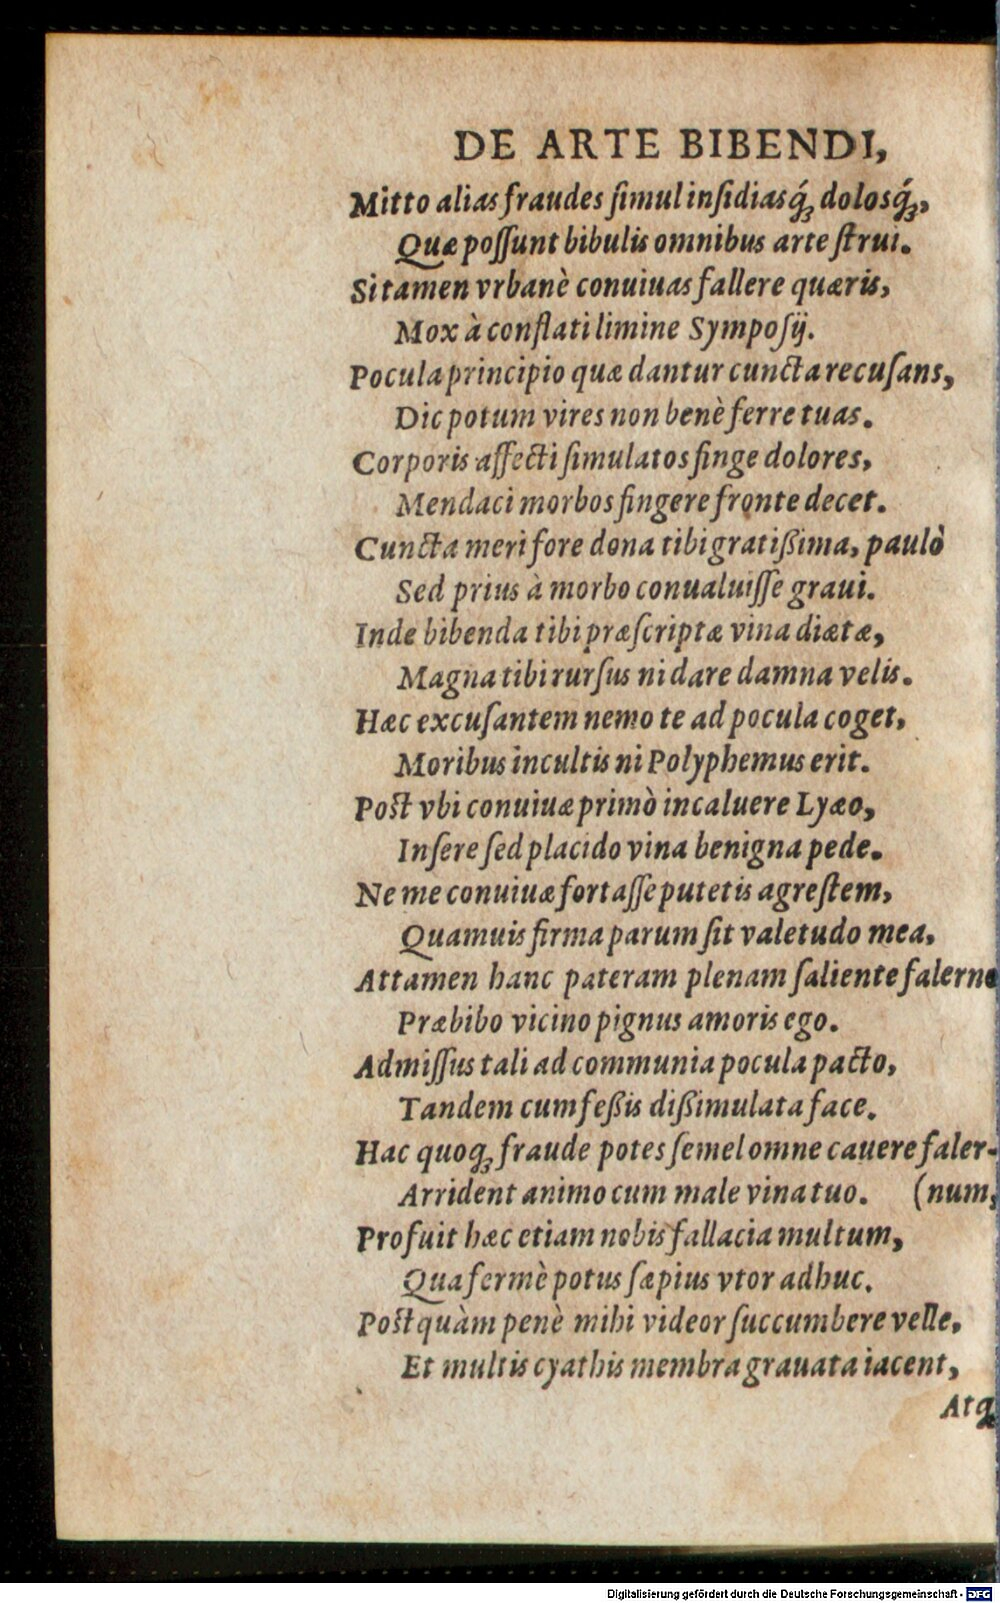 DE ARTE BIBENDI,
Mitto alias fraudes ſimul inſidiasq́ꝫ dolosq́ꝫ,
Quæ poſſunt bibulis omnibus arte ſtrui.
Si tamen vrbanè conuiuas fallere quæris,
Mox à conflati limine Sympoſij.
Pocula principio quæ dantur cuncta recuſans,
Dic potum vires non benè ferre tuas.
Corporis affecti ſimulatos finge dolores,
Mendaci morbos fingere fronte decet.
Cuncta meri fore dona tibi gratißima, paulò
Sed prius à morbo conualuiſſe graui.
Inde bibenda tibi præſcriptæ vina diætæ,
Magna tibi rurſus ni dare damna velis.
Hæc excuſantem nemo te ad pocula coget,
Moribus incultis ni Polyphemus erit.
Poſt vbi conuiuæ primò incaluere Lyæo,
Inſere ſed placido vina benigna pede.
Ne me conuiuæ fortaſſe putetis agreſtem,
Quamuis firma parum ſit valetudo mea,
Attamen hanc pateram plenam ſaliente falerno
Præbibo vicino pignus amoris ego.
Admiſſus tali ad communia pocula pacto,
Tandem cum feßis dißimulata face.
Hac quoqꝫ fraude potes ſemel omne cauere faler-
Arrident animo cum male vina tuo. (num,
Profuit hæc etiam nobis fallacia multum,
Qua fermè potus ſæpius vtor adhuc.
Poſtquàm penè mihi videor ſuccumbere velle,
Et multis cyathis membra grauata iacent,
Atqꝫ
Digitalisierung gefördert durch die Deutsche Forschungsgemeinschaft - DFG